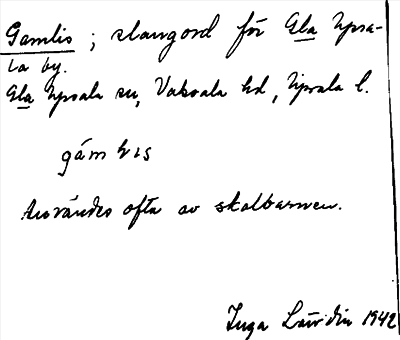 Gamlis ; slangord för Gla Upsa-
la by.
Gla Upsala sn, Vaksala hd, Upsala l.
gám lıs
Användes ofta av skolbarnen.
Inga Lärdin 1942